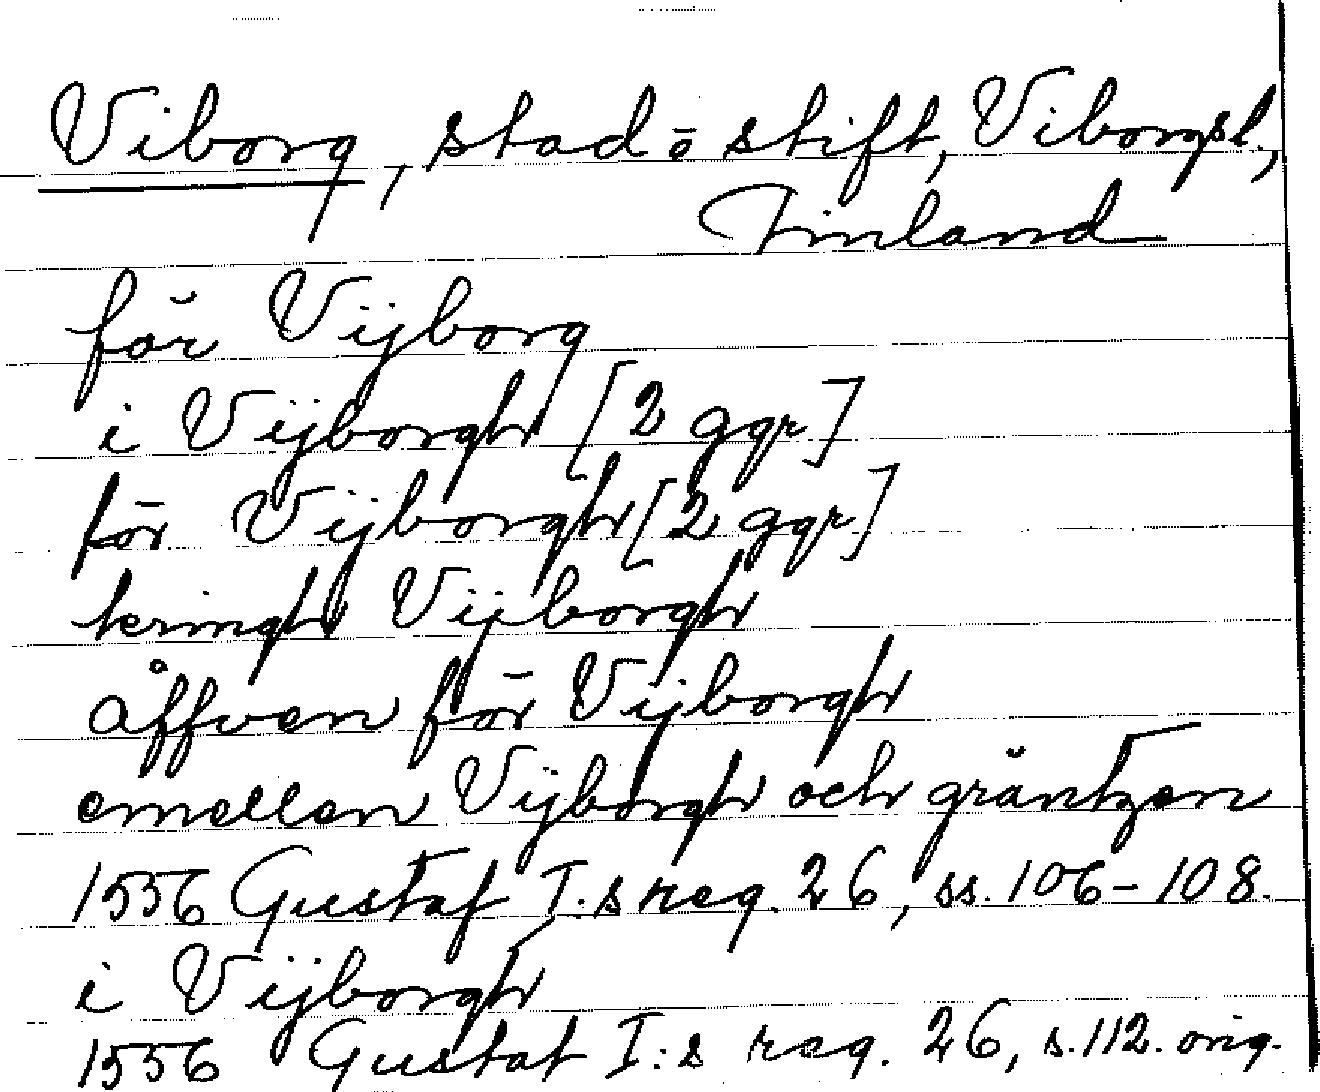 Viborg, stad o stift, Viborgsl.,
Finland
för Vijborg
i Vijborgh [2 ggr]
för Vijborgh [2 ggr]
kringh Vijborgh
åffven för Vijborgh
emellen Vijborgh och gräntzen
1556 Gustaf I:s reg. 26, ss. 106-108.
i Vijborgh
1556 Gustaf I:s reg. 26, s. 112. orig.